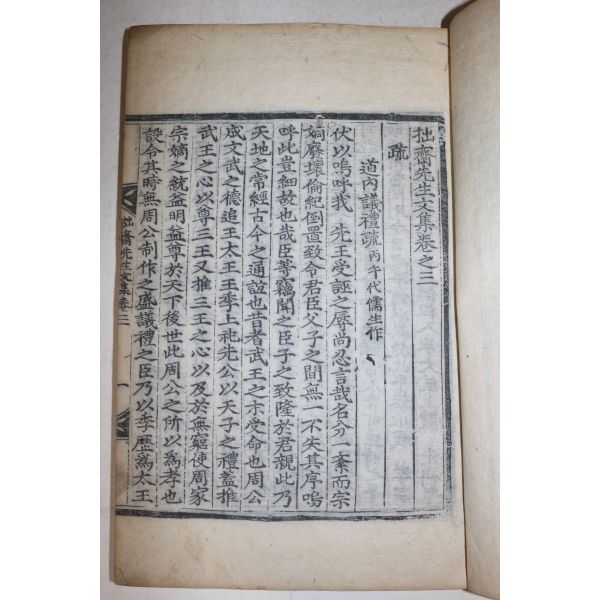 拙齋先生文集卷之三
疏
道内議禮疏 丙午代儒生作
伏以嗚呼我 先王受誣之辱尚忍言哉名分一紊而宗
嫡廢壞倫紀倒置致令君臣父子之間無一不失其序嗚
呼此豈細故也哉臣等竊聞之臣子之致隆於君親此乃
天地之常經古今之通誼也昔者武王之末受命也周公
成文武之德追王太王王季上祀先公以天子之禮蓋推
武王之心以尊三王又推三王之心以及於無窮使周家
宗嫡之統益明益尊於天下後世此周公之所以為孝也
設令其時無周公制作之盛議禮之臣乃以季歷爲太王
拙齋先生文集卷三
一